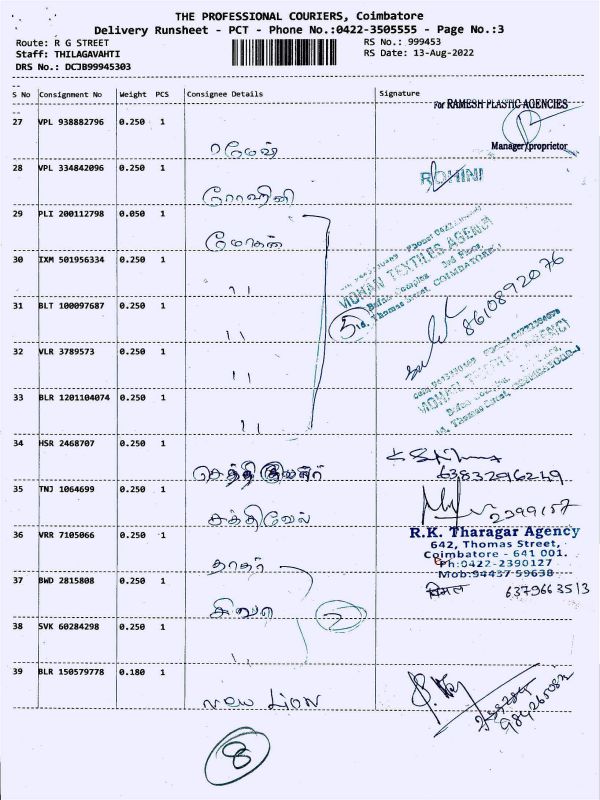 THE PROFESSIONAL COURIERS, Coimbatore
Delivery Runsheet - PCT - Phone No.:0422-3505555 - Page No.:3
Route: R G STREET RS No.: 999453
Staff: THILAGAVAHTI RS Date: 13-Aug-2022
DRS No.: DCJB99945303
S No Consignment No Weight PCS Consignee Details Signature
For RAMESH PLASTIC AGENCIES
27 VPL 938882796 0.250 1
Manager/proprietor
ரமேஷ்
28 VPL 334842096 0.250 1 ROHINI
ரோஹினி
29 PLI 200112798 0.050 1
மோகன்
MOHAN TEXTILES AGENCY
30 IXM 501956334 0.250 1
" 5
31 BLT 100097687 0.250 1
8610892076
"
32 VLR 3789573 0.250 1
"
33 BLR 1201104074 0.250 1
"
34 HSR 2468707 0.250 1
6383296249
35 TNJ 1064699 0.250 1
சக்திவேல் 2399157
36 VRR 7105066 0.250 1
R.K. Tharagar Agency
642, Thomas Street,
Coimbatore - 641 001.
தாகர் Ph:0422-2390127
37 BWD 2815808 0.250 1 Mob:94437 59638
विमल 6379663513
2
38 SVK 60284298 0.250 1
"
39 BLR 150579778 0.180 1
New Lion
8